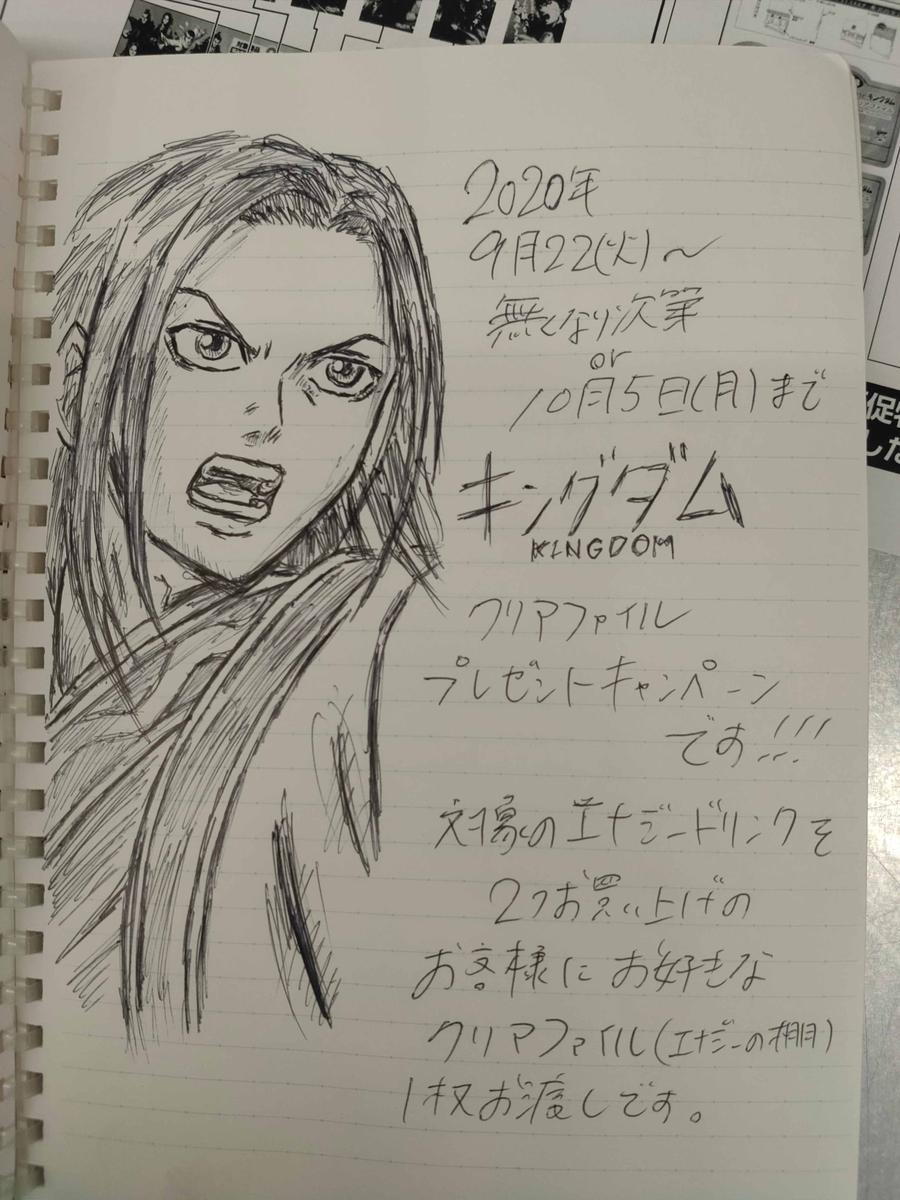 2020年
9月22(火)～
無くなり次第
or
10月5日(月)まで
キングダム
KINGDOM
クリアファイル
プレゼントキャンペーン
です!!!
対象のエナジードリンクを
2つお買い上げの
お客様にお好きな
クリアファイル(エナジーの棚)
1枚お渡しです。